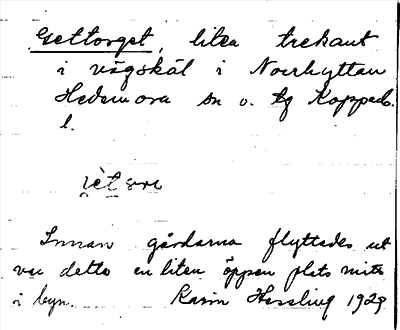 Gettorget, liten trekant
i vägskäl i Norrhyttan
Hedemora sn o. tg Kopparb.
l.
Innan gårdarna flyttades ut
var detta en liten öppen plats mitt
i byn. Karin Hessling 1929